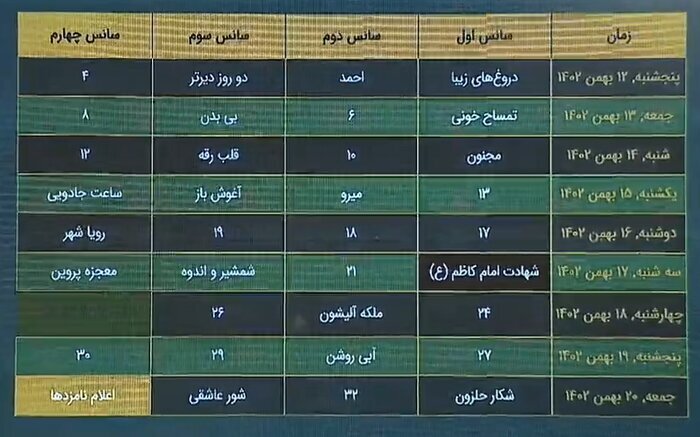 زمان سانس اول سانس دوم سانس سوم سانس چهارم
پنجشنبه, ۱۲ بهمن ۱۴۰۲ دروغ‌های زیبا احمد دو روز دیرتر ۴
جمعه, ۱۳ بهمن ۱۴۰۲ تمساح خونی ۶ بی بدن ۸
شنبه, ۱۴ بهمن ۱۴۰۲ مجنون ۱۰ قلب رقه ۱۲
یکشنبه, ۱۵ بهمن ۱۴۰۲ ۱۳ میرو آغوش باز ساعت جادویی
دوشنبه, ۱۶ بهمن ۱۴۰۲ ۱۷ ۱۸ ۱۹ رویا شهر
سه شنبه, ۱۷ بهمن ۱۴۰۲ شهادت امام کاظم (ع) ۲۱ شمشیر و اندوه معجزه پروین
چهارشنبه, ۱۸ بهمن ۱۴۰۲ ۲۴ ملکه آلیشون ۲۶
پنجشنبه, ۱۹ بهمن ۱۴۰۲ ۲۷ آبی روشن ۲۹ ۳۰
جمعه, ۲۰ بهمن ۱۴۰۲ شکار حلزون ۳۲ شور عاشقی اعلام نامزدها